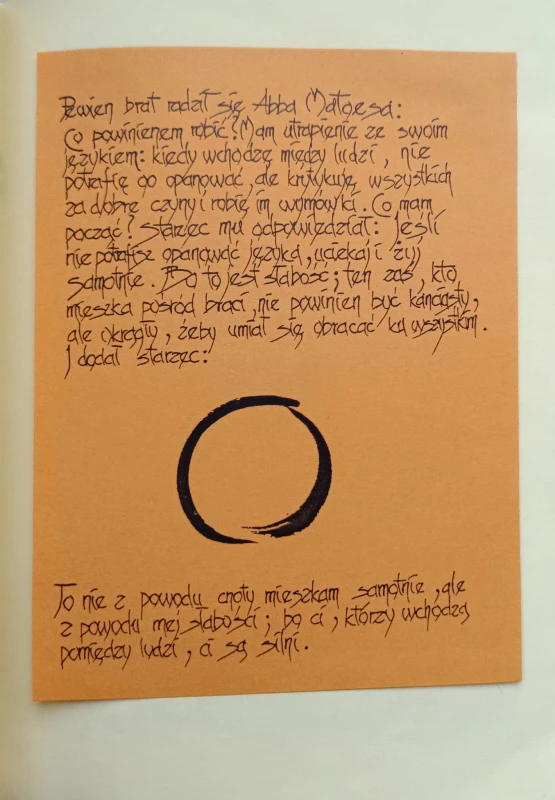 Pewien brat radził się Abba Matoesa:
Co powinienem robić? Mam utrapienie ze swoim
językiem: kiedy wchodzę między ludzi, nie
potrafię go opanować, ale krytykuję wszystkich
za dobre czyny i robię im wymówki. Co mam
począć? Starzec mu odpowiedział: Jeśli
nie potrafisz opanować języka, uciekaj i żyj
samotnie. Bo to jest słabość; ten zaś, kto
mieszka pośród braci, nie powinien być kanciasty,
ale okrągły, żeby umiał się obracać ku wszystkim.
I dodał starzec:
To nie z powodu cnoty mieszkam samotnie, ale
z powodu mej słabości; bo ci, którzy wchodzą
pomiędzy ludzi, ci są silni.